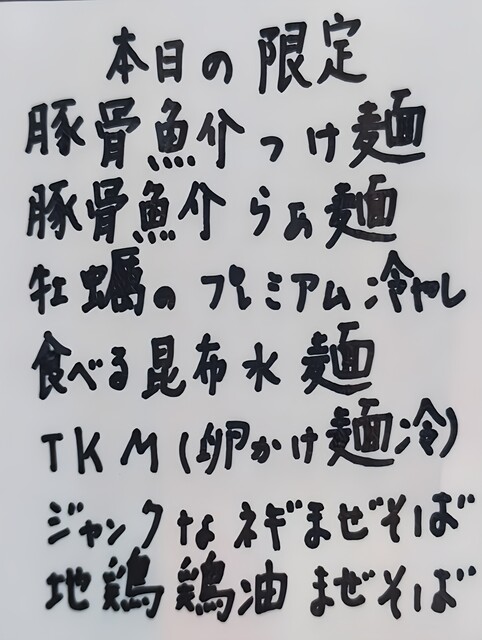 本日の限定
豚骨魚介つけ麺
豚骨魚介らぁ麺
牡蠣のプレミアム冷やし
食べる昆布水麺
TKM(卵かけ麺冷)
ジャンクなネギまぜそば
地鶏鶏油まぜそば